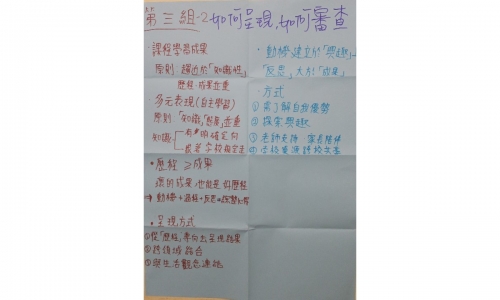 第三組-2 如何呈現,如何審查
·課程學習成果
原則:趨近於「知識性」
歷程·成果並重
·多元表現(自主學習)
原則「知識」「態度」並重
知識:有明確定向
或若學校指定
·歷程 ≥ 成果
壞的成果,也能是好歷程
→ 動機+過程+反思
·呈現方式
①從「歷程」導向去呈現結果
②跨領域結合
③與生活觀念連結
·動機建立於「興趣」
「反思」大於「成果」
·方式
①需了解自我優勢
②探索興趣
③老師支持、家長陪伴
④學校資源